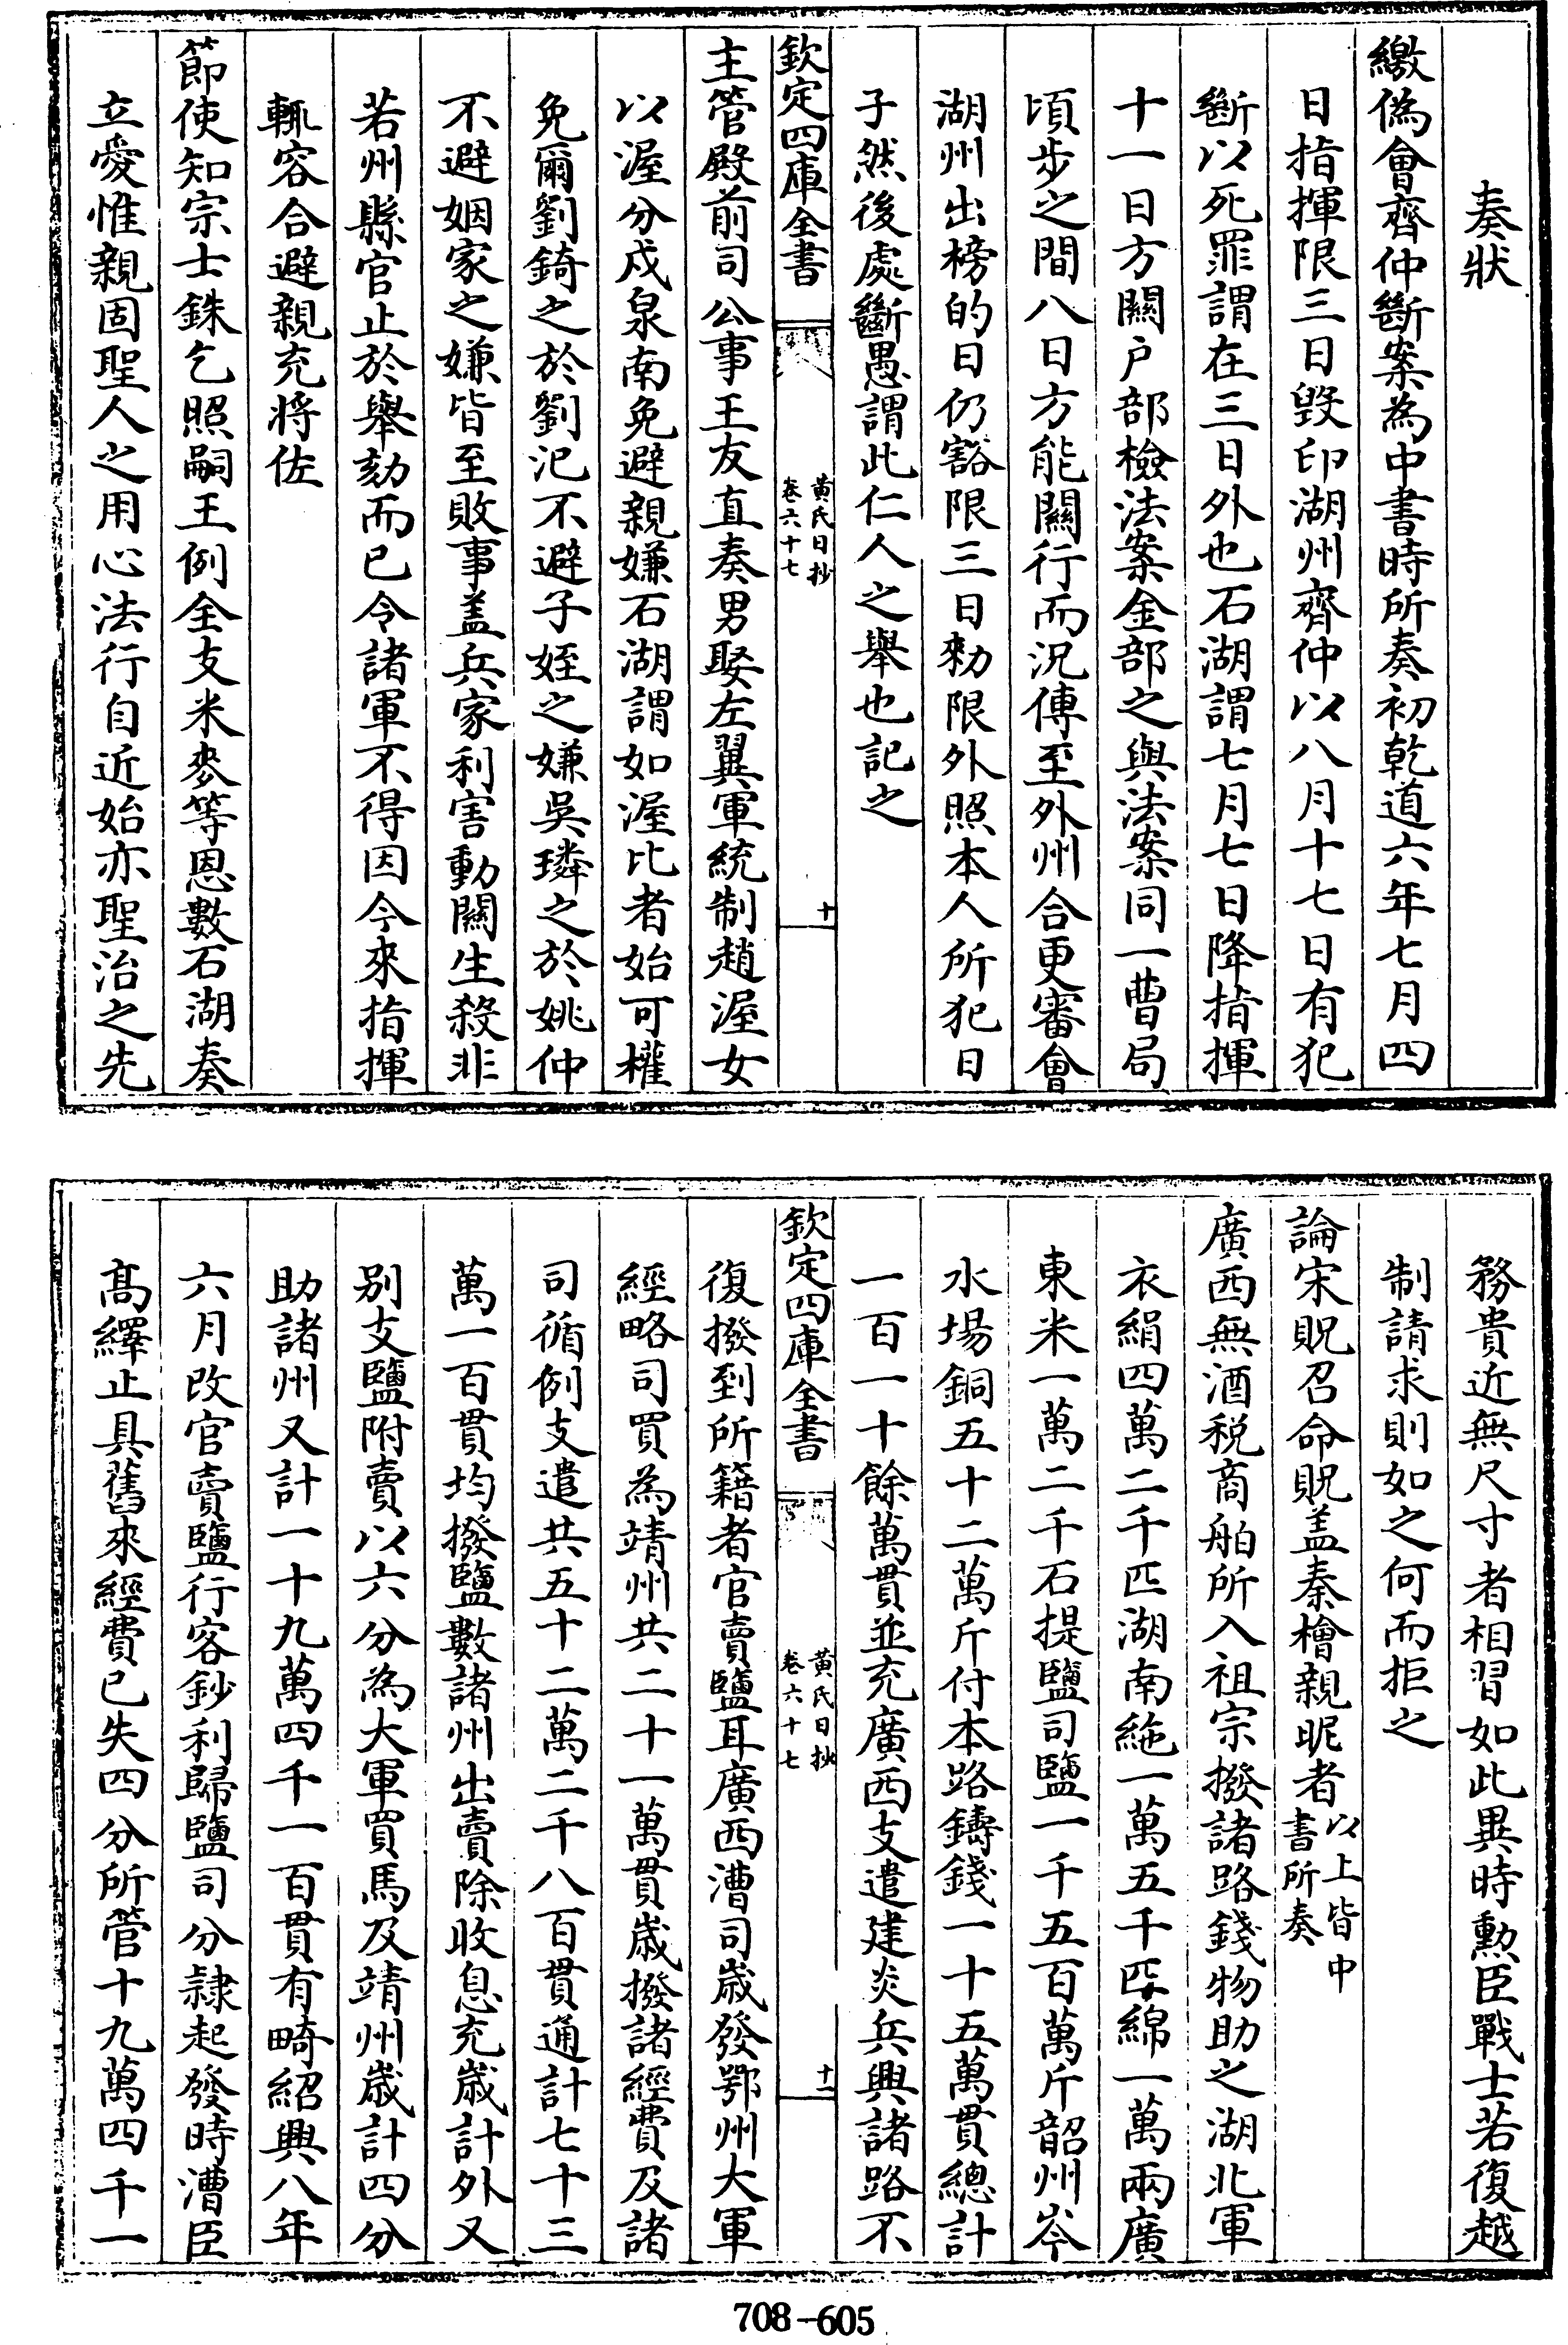 奏狀
繳偽會齊仲斷案為中書時所奏初乾道六年七月四
日指揮限三日毀印湖州齊仲以八月十七日有犯
斷以死罪謂在三日外也石湖謂七月七日降指揮
十一日方關户部檢法案金部之與法案同一曹局
頃步之間八日方能關行而況傳至外州合更審會
湖州出榜的日仍豁限三日勑限外照本人所犯日
子然後處斷愚謂此仁人之舉也記之
欽定四庫全書
黄氏日抄
卷六十七
十
主管殿前司公事王友直奏男娶左翼軍統制趙渥女
以渥分戍泉南免避親嫌石湖謂如渥比者始可權
免爾劉錡之於劉汜不避子姪之嫌吳璘之於姚仲
不避姻家之嫌皆至敗事盖兵家利害動關生殺非
若州縣官止於舉劾而已令諸軍不得因今來指揮
輒容合避親充將佐
節使知宗士銖乞照嗣王例全支米麥等恩數石湖奏
立愛惟親固聖人之用心法行自近始亦聖治之先
務貴近無尺寸者相習如此異時勲臣戰士若復越
制請求則如之何而拒之
論宋貺召命貺盖秦檜親昵者以上皆中
書所奏
廣西無酒税商舶所入祖宗撥諸路錢物助之湖北軍
衣絹四萬二千匹湖南絁一萬五千匹綿一萬兩廣
東米一萬二千石提鹽司鹽一千五百萬斤韶州岑
水場銅五十二萬斤付本路鑄錢一十五萬貫總計
一百一十餘萬貫並充廣西支遣建炎兵興諸路不
欽定四庫全書
黄氏日抄
卷六十七
十一
復撥到所籍者官賣鹽耳廣西漕司歲發鄂州大軍
經略司買為靖州共二十一萬貫歲撥諸經費及諸
司循例支遣共五十二萬二千八百貫通計七十三
萬一百貫均撥鹽數諸州出賣除收息充歲計外又
别支鹽附賣以六分為大軍買馬及靖州歲計四分
助諸州又計一十九萬四千一百貫有畸紹興八年
六月改官賣鹽行客鈔利歸鹽司分隸起發時漕臣
髙繹止具舊來經費已失四分所管十九萬四千一
708-605